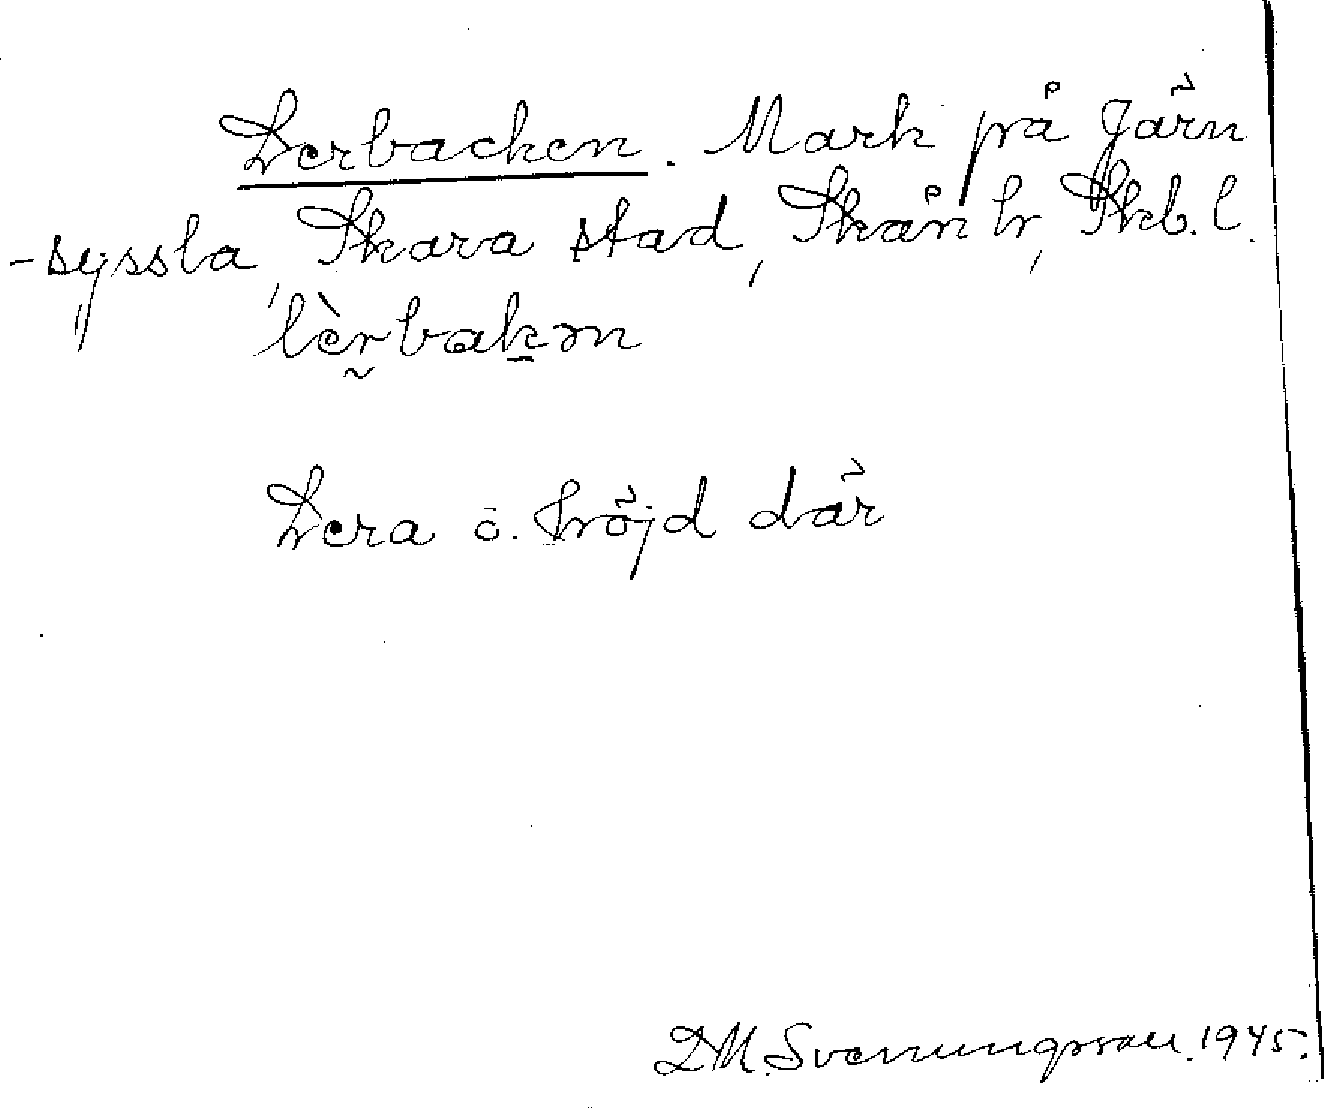 Lerbacken. Mark på Järn
-syssla, Skara stad, Skån hr, Skb. l.
lèr̰bak̲ən
Lera o. höjd där
D.M. Svenungsson. 1945.